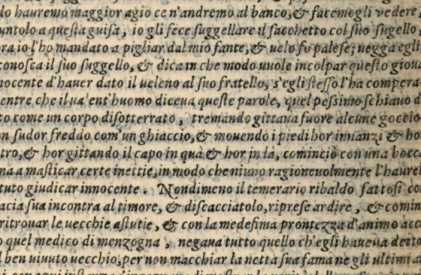 do hauremo maggior agio ce n'andremo al banco, & facemogli vedere,
untolo a questa guisa, io gli fece suggellare il sacchetto col suo sugello,
ora io l'ho mandato a pigliar dal mio fante, & uelo fo palese; uegga egli
conosca il suo suggello, & dica in che modo uuole incolpar questo gioua
nocente d'hauer dato il ueleno al suo fratello, s'egli stesso l'ha compera
entre che il ua'ent'huomo diceua queste parole, quel pessimo schiauo d
to come un corpo disotterrato, tremando gittaua fuore alcune gocciol
n sudor freddo com'un ghiaccio, & mouendo i piedi hor innanzi & ho
tro, & hor gittando il capo in qua & hor in la, cominciò con una bocca
na a masticar certe inettie, in modo che niuno ragioneuolmente l'haureb
tuto giudicar innocente. Nondimeno il temerario ribaldo fattosi co
acia sua incontra al timore, & discacciatolo, riprese ardire, & comin
ritrouar le uecchie astutie, & con la medesima prontezza d'animo acc
o quel medico di menzogna, negaua tutto quello ch'egli haueua detto
l ben uiuuto uecchio, per non macchiar la netta sua fama ne gli ultimi a